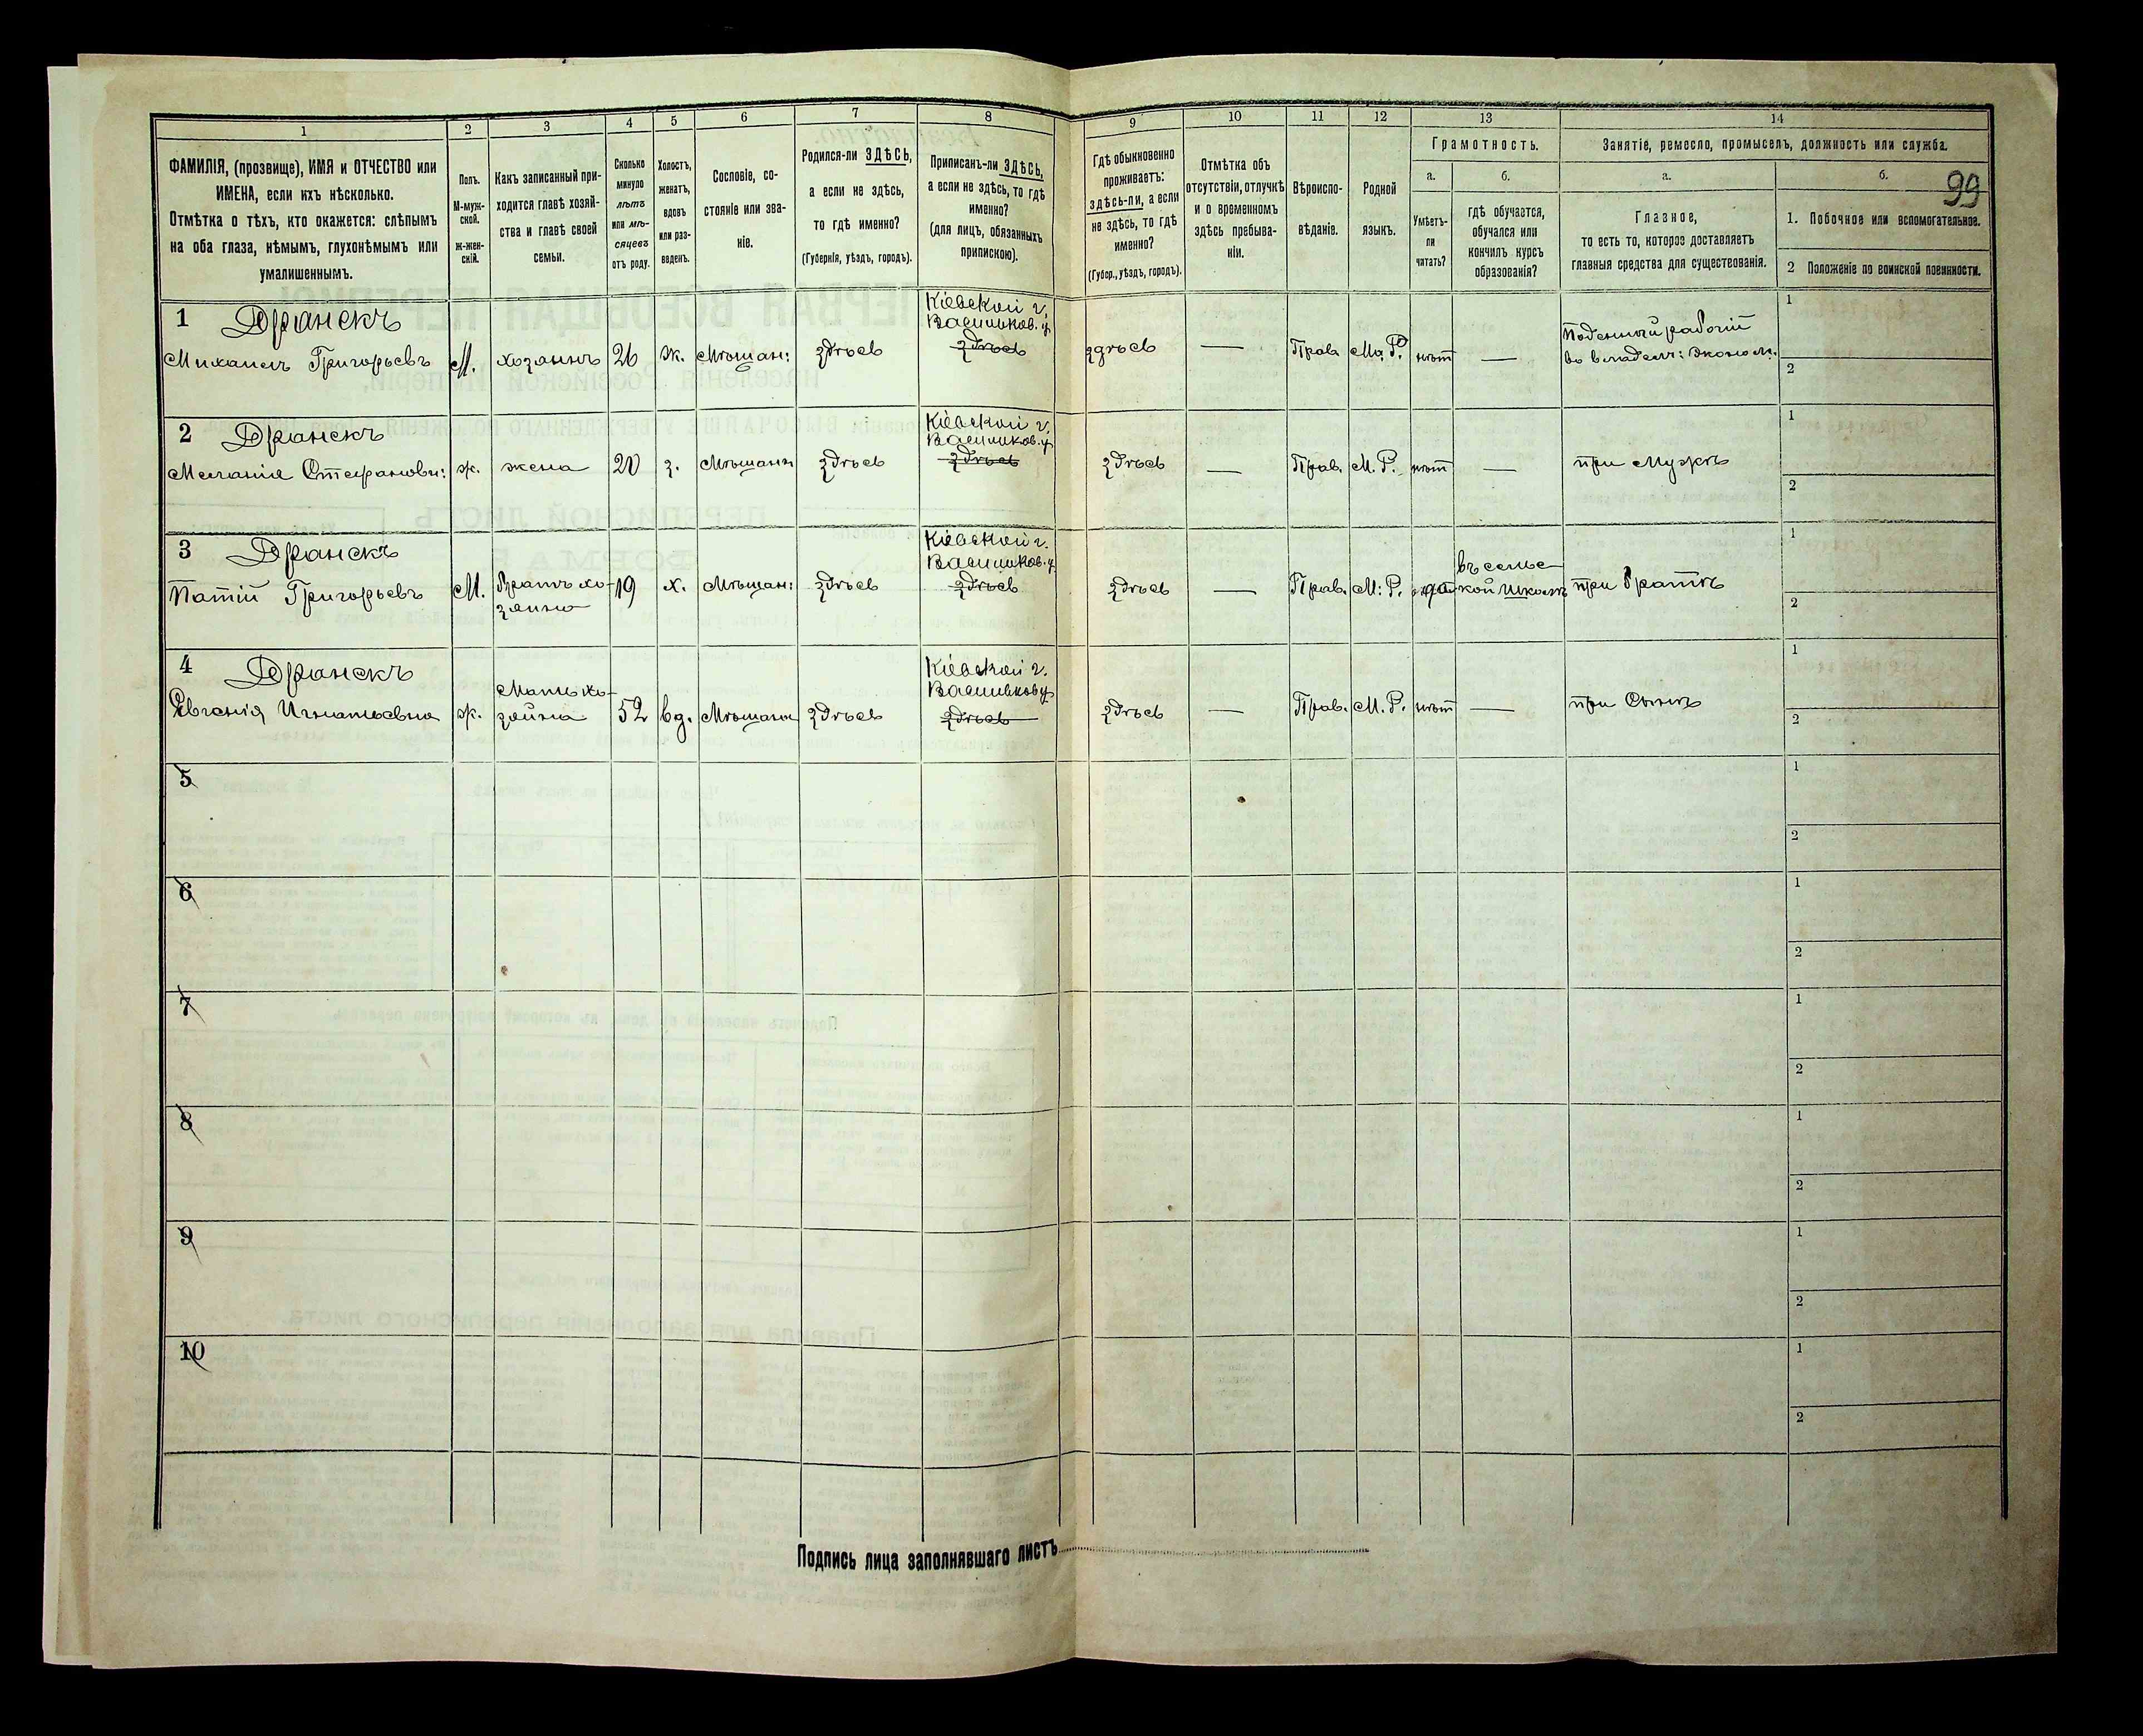 1
2
3
4
5
6
7
8
9
10
11
12
13
14
ФАМИЛІЯ, (прозвище), ИМЯ и ОТЧЕСТВО или
ИМЕНА, если ихъ нѣсколько.
Отмѣтка о тѣхъ, кто окажется: слѣпымъ
на оба глаза, нѣмымъ, глухонѣмымъ или
умалишеннымъ.
Полъ.
М-муж-
ской.
ж-жен-
скій.
Какъ записанный при-
ходится главѣ хозяй-
ства и главѣ своей
семьи.
Сколько
минуло
лѣтъ
или мѣ-
сяцевъ
отъ роду.
Холостъ,
женатъ,
вдовъ
или раз-
веденъ.
Сословіе, со-
стояніе или зва-
ніе.
Родился-ли ЗДѢСЬ,
а если не здѣсь,
то гдѣ именно?
(Губернія, уѣздъ, городъ).
Приписанъ-ли ЗДѢСЬ,
а если не здѣсь, то гдѣ
именно?
(для лицъ, обязанныхъ
припискою).
Гдѣ обыкновенно
проживаетъ:
здѣсь-ли, а если
не здѣсь, то гдѣ
именно?
(Губер., уѣздъ, городъ).
Отмѣтка объ
отсутствіи, отлучкѣ
и о временномъ
здѣсь пребыва-
ніи.
Вѣроиспо-
вѣданіе.
Родной
языкъ.
Грамотность.
а.
Умѣетъ-
ли
читать?
б.
гдѣ обучается,
обучался или
кончилъ курсъ
образованія?
Занятіе, ремесло, промыселъ, должность или служба.
а.
Главное,
то есть то, которое доставляетъ
главныя средства для существованія.
б.
99
1. Побочное или вспомогательное.
2 Положеніе по воинской повинности.
1 Дранскъ
Михаилъ Григорьевъ
М.
хозяинъ
26
ж.
Мѣщан:
здѣсь
Кіевской г.
Васильков. у.
здѣсь
здѣсь
—
Прав.
Ма. Р.
нѣт
—
Поденный рабочій
во владѣлч: эконом.
1
2
2 Дранскъ
Меланія Стефанови:
ж.
жена
20
з.
Мѣщанк
здѣсь
Кіевской г.
Васильков. у.
здѣсь
здѣсь
—
Прав.
М. Р.
нѣт
—
при Мужѣ
1
2
3 Дранскъ
Григорьевъ
М.
Братъ хо-
зяина
19
х.
Мѣщан:
здѣсь
Кіевской г.
Васильков. у.
здѣсь
здѣсь
—
Прав.
М: Р.
да
въ сельс-
кой школѣ
при братѣ
1
2
4 Дранскъ
Евгенія Игнатьевна
ж.
Мать хо-
зяина
52
вд.
Мѣщанк
здѣсь
Кіевской г.
Васильков у.
здѣсь
здѣсь
—
Прав.
М. Р.
нѣт
—
при Сынѣ
1
2
5
1
2
6
1
2
7
1
2
8
1
2
9
1
2
10
1
2
Подпись лица заполнявшаго листъ